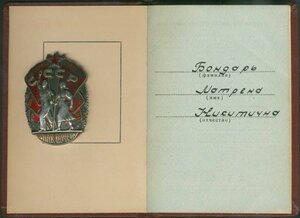 СССР
Бондарь
(фамилия)
Матрена
(имя)
Никитична
(отчество)